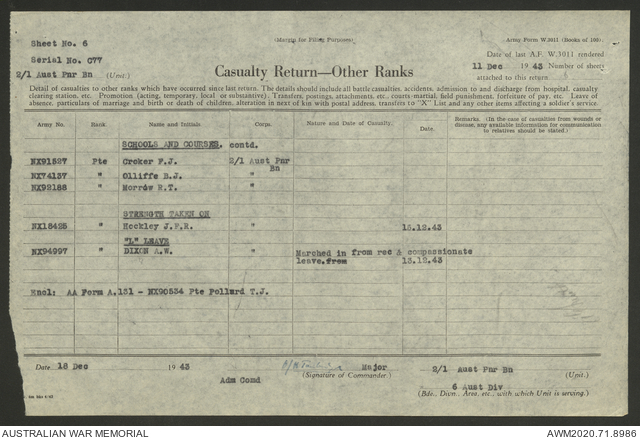 (Margin for Filing Purposes)
Army Form W.3011 (Books of 100).
Sheet No. 6
Serial No. C77
2/1 Aust Pnr Bn (Unit)
Date of last A.F. W.3011 rendered
11 Dec 1943 Number of sheets
attached to this return
Casualty Return—Other Ranks
Detail of casualties to other ranks which have occurred since last return. The details should include all battle casualties, accidents, admission to and discharge from hospital, casualty
clearing station, etc. Promotion (acting, temporary, local or substantive). Transfers, postings, attachments, etc., courts-martial, field punishment, forfeiture of pay, etc. Leave of
absence, particulars of marriage and birth or death of children, alteration in next of kin with postal address, transfers to "X" List and any other items affecting a soldier's service.
Army No. Rank Name and Initials Corps. Nature and Date of Casualty. Date. Remarks. (In the case of casualties from wounds or
disease, any available information for communication
to relatives should be stated.)
SCHOOLS AND COURSES. contd.
NX91527 Pte Croker F.J. 2/1 Aust Pnr
Bn
NX74137 " Olliffe B.J. "
NX92188 " Morrow R.T. "
STRENGTH TAKEN ON
NX18425 " Hockley J.F.R. " 15.12.43
"L" LEAVE
NX94997 " DIXON A.W. " Marched in from rec & compassionate
leave.from 13.12.43
Encl: AA Form A.131 - NX90534 Pte Pollard T.J.
Date 18 Dec 1943 Major 2/1 Aust Pnr Bn (Unit.)
Adm Comd (Signature of Commander.) 6 Aust Div
(Bde., Divn., Area, etc., with which Unit is serving.)
AUSTRALIAN WAR MEMORIAL AWM2020.71.8986